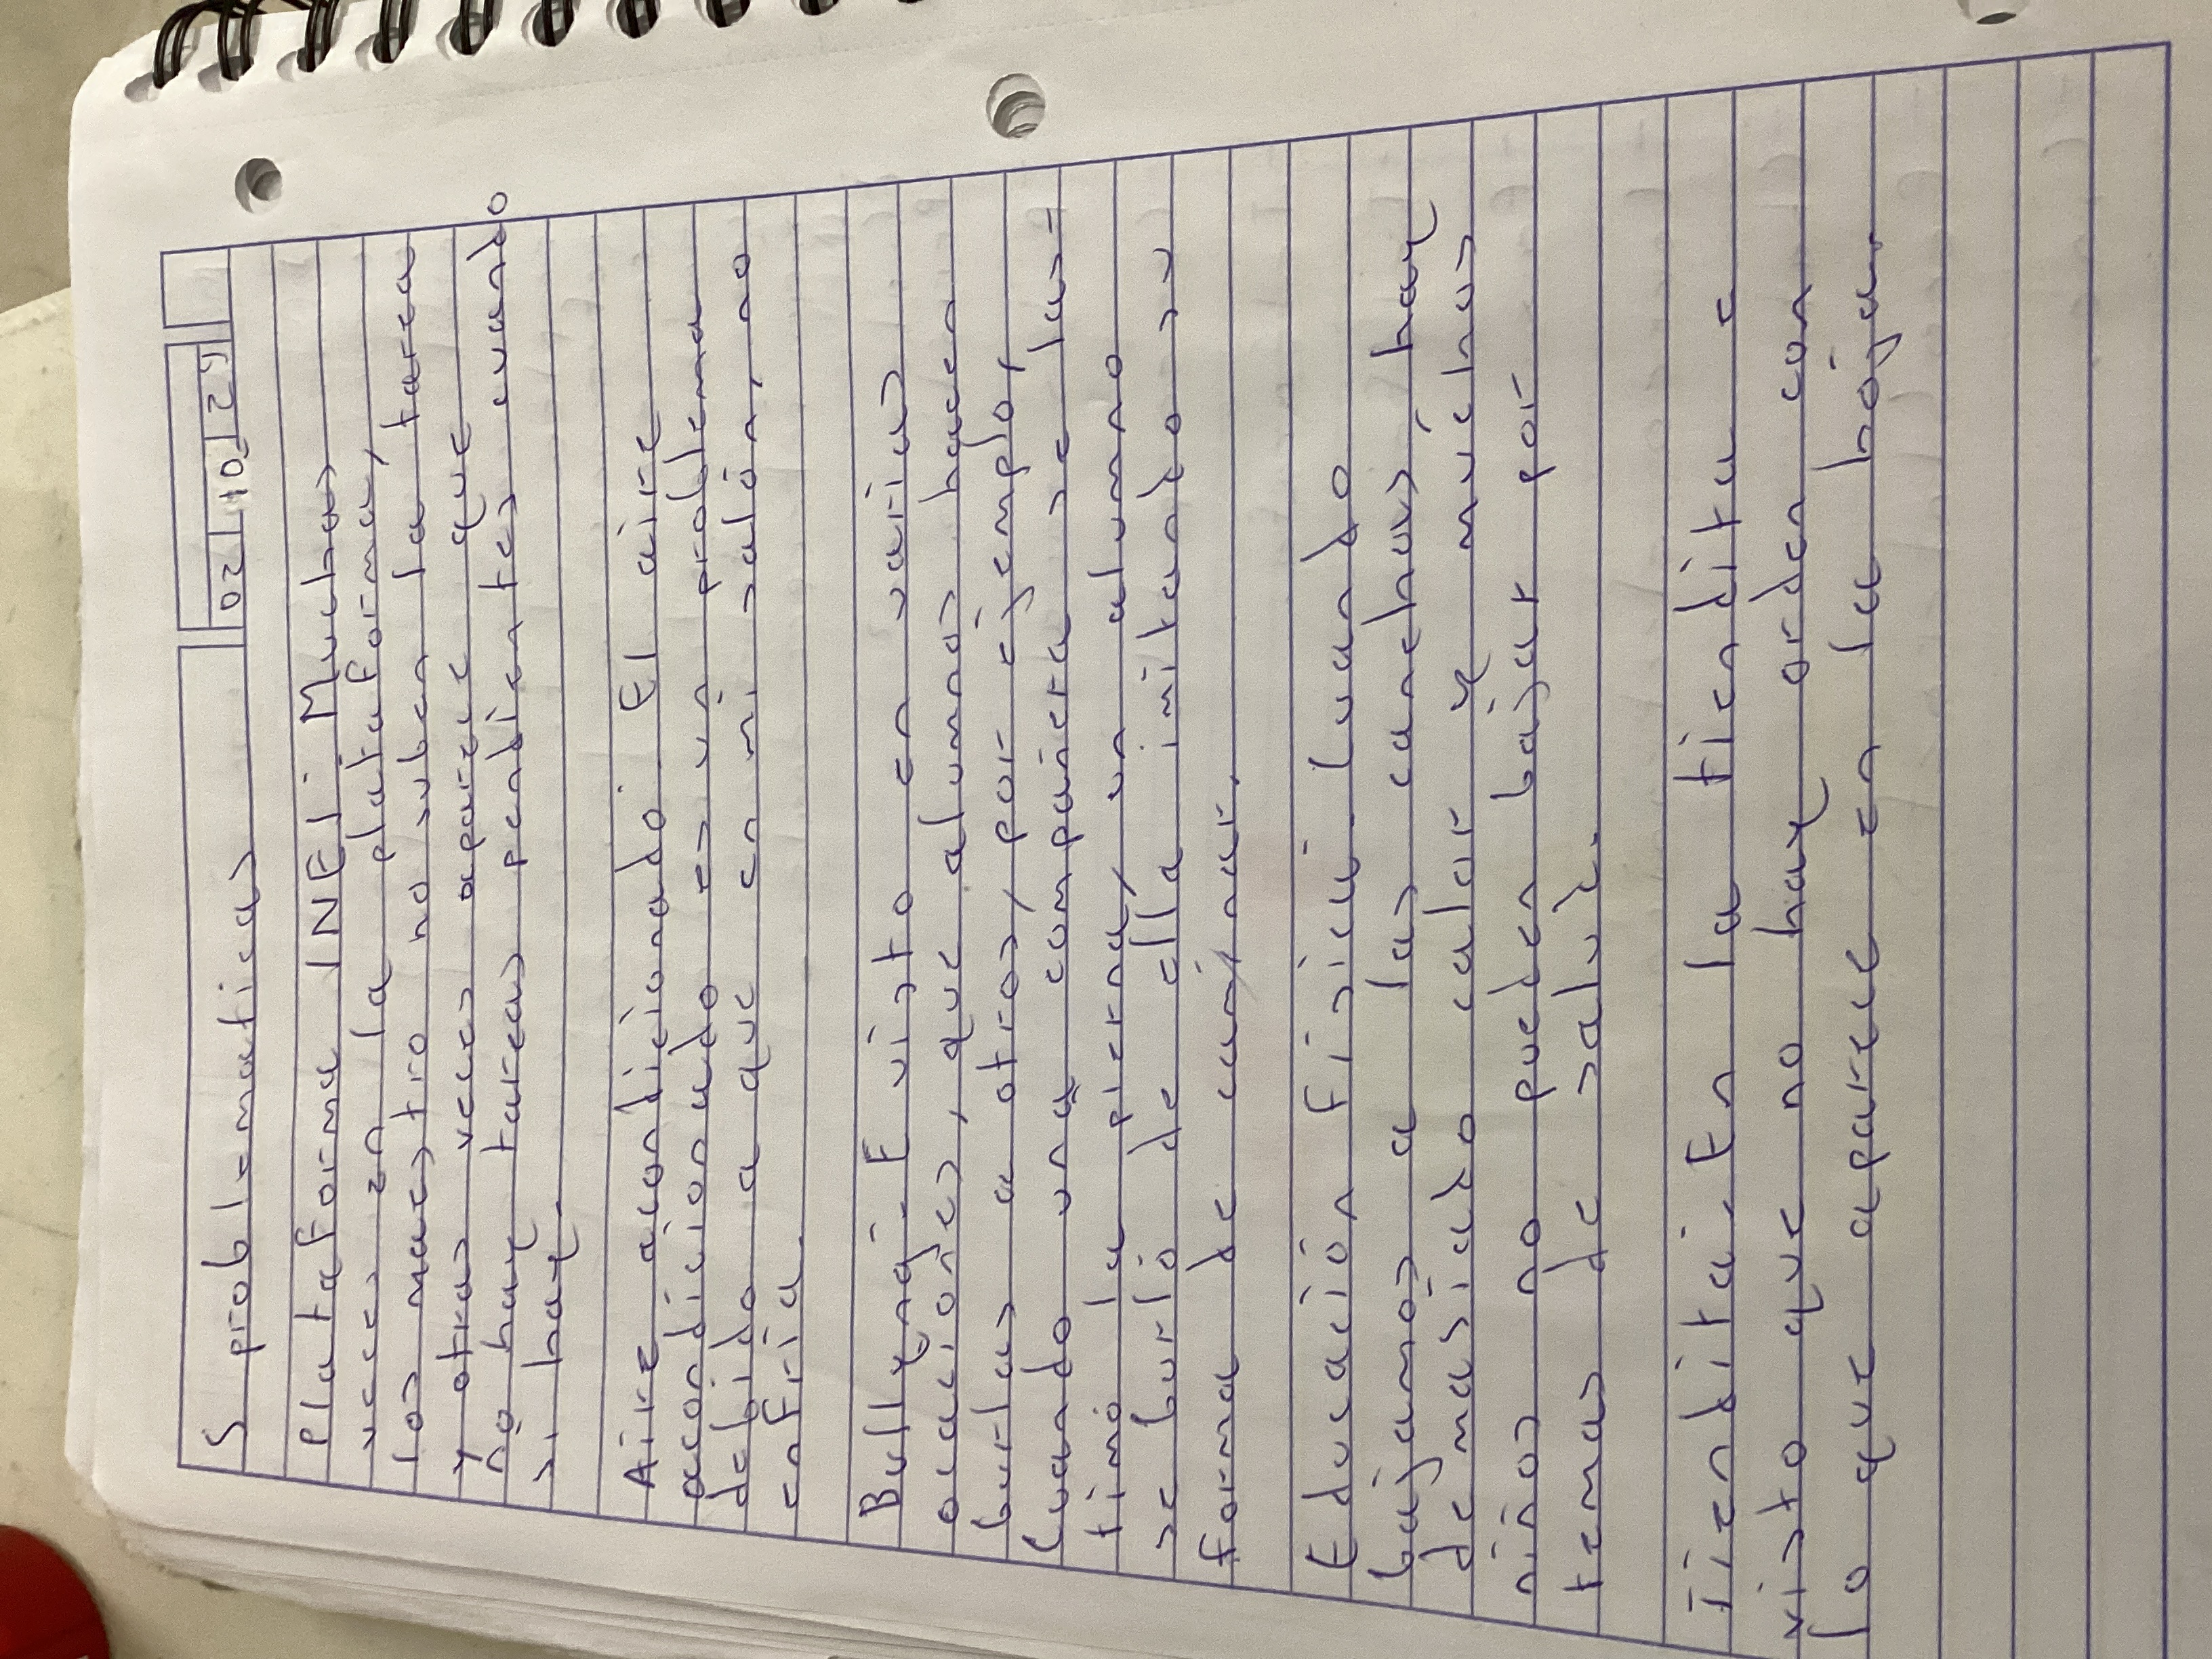 02 10 24
5 problematicas
Plataforma INEI: Muchas
veces en la plataforma,
los maestro no suben la tarea
y otras veces aparece que
no hay tareas pendientes cuando
si hay.
Aire acondicionado: El aire
acondicionado es un problema
debido a que en mi salón, no
enfria.
Bullyng: E visto en varias
ocaciones, que alumnos hacen
burlas a otros, por ejemplo,
Cuando una compañera se las-
timó la pierna, un alumno
se burló de ella imitando su
forma de caminar.
Educación fisica: Cuando
bajamos a las canchas, hay
demasiado calor y muchos
niños no pueden bajar por
temas de salud.
Tiendita: En la tiendita e
visto que no hay orden con
lo que aparece en la hoja.